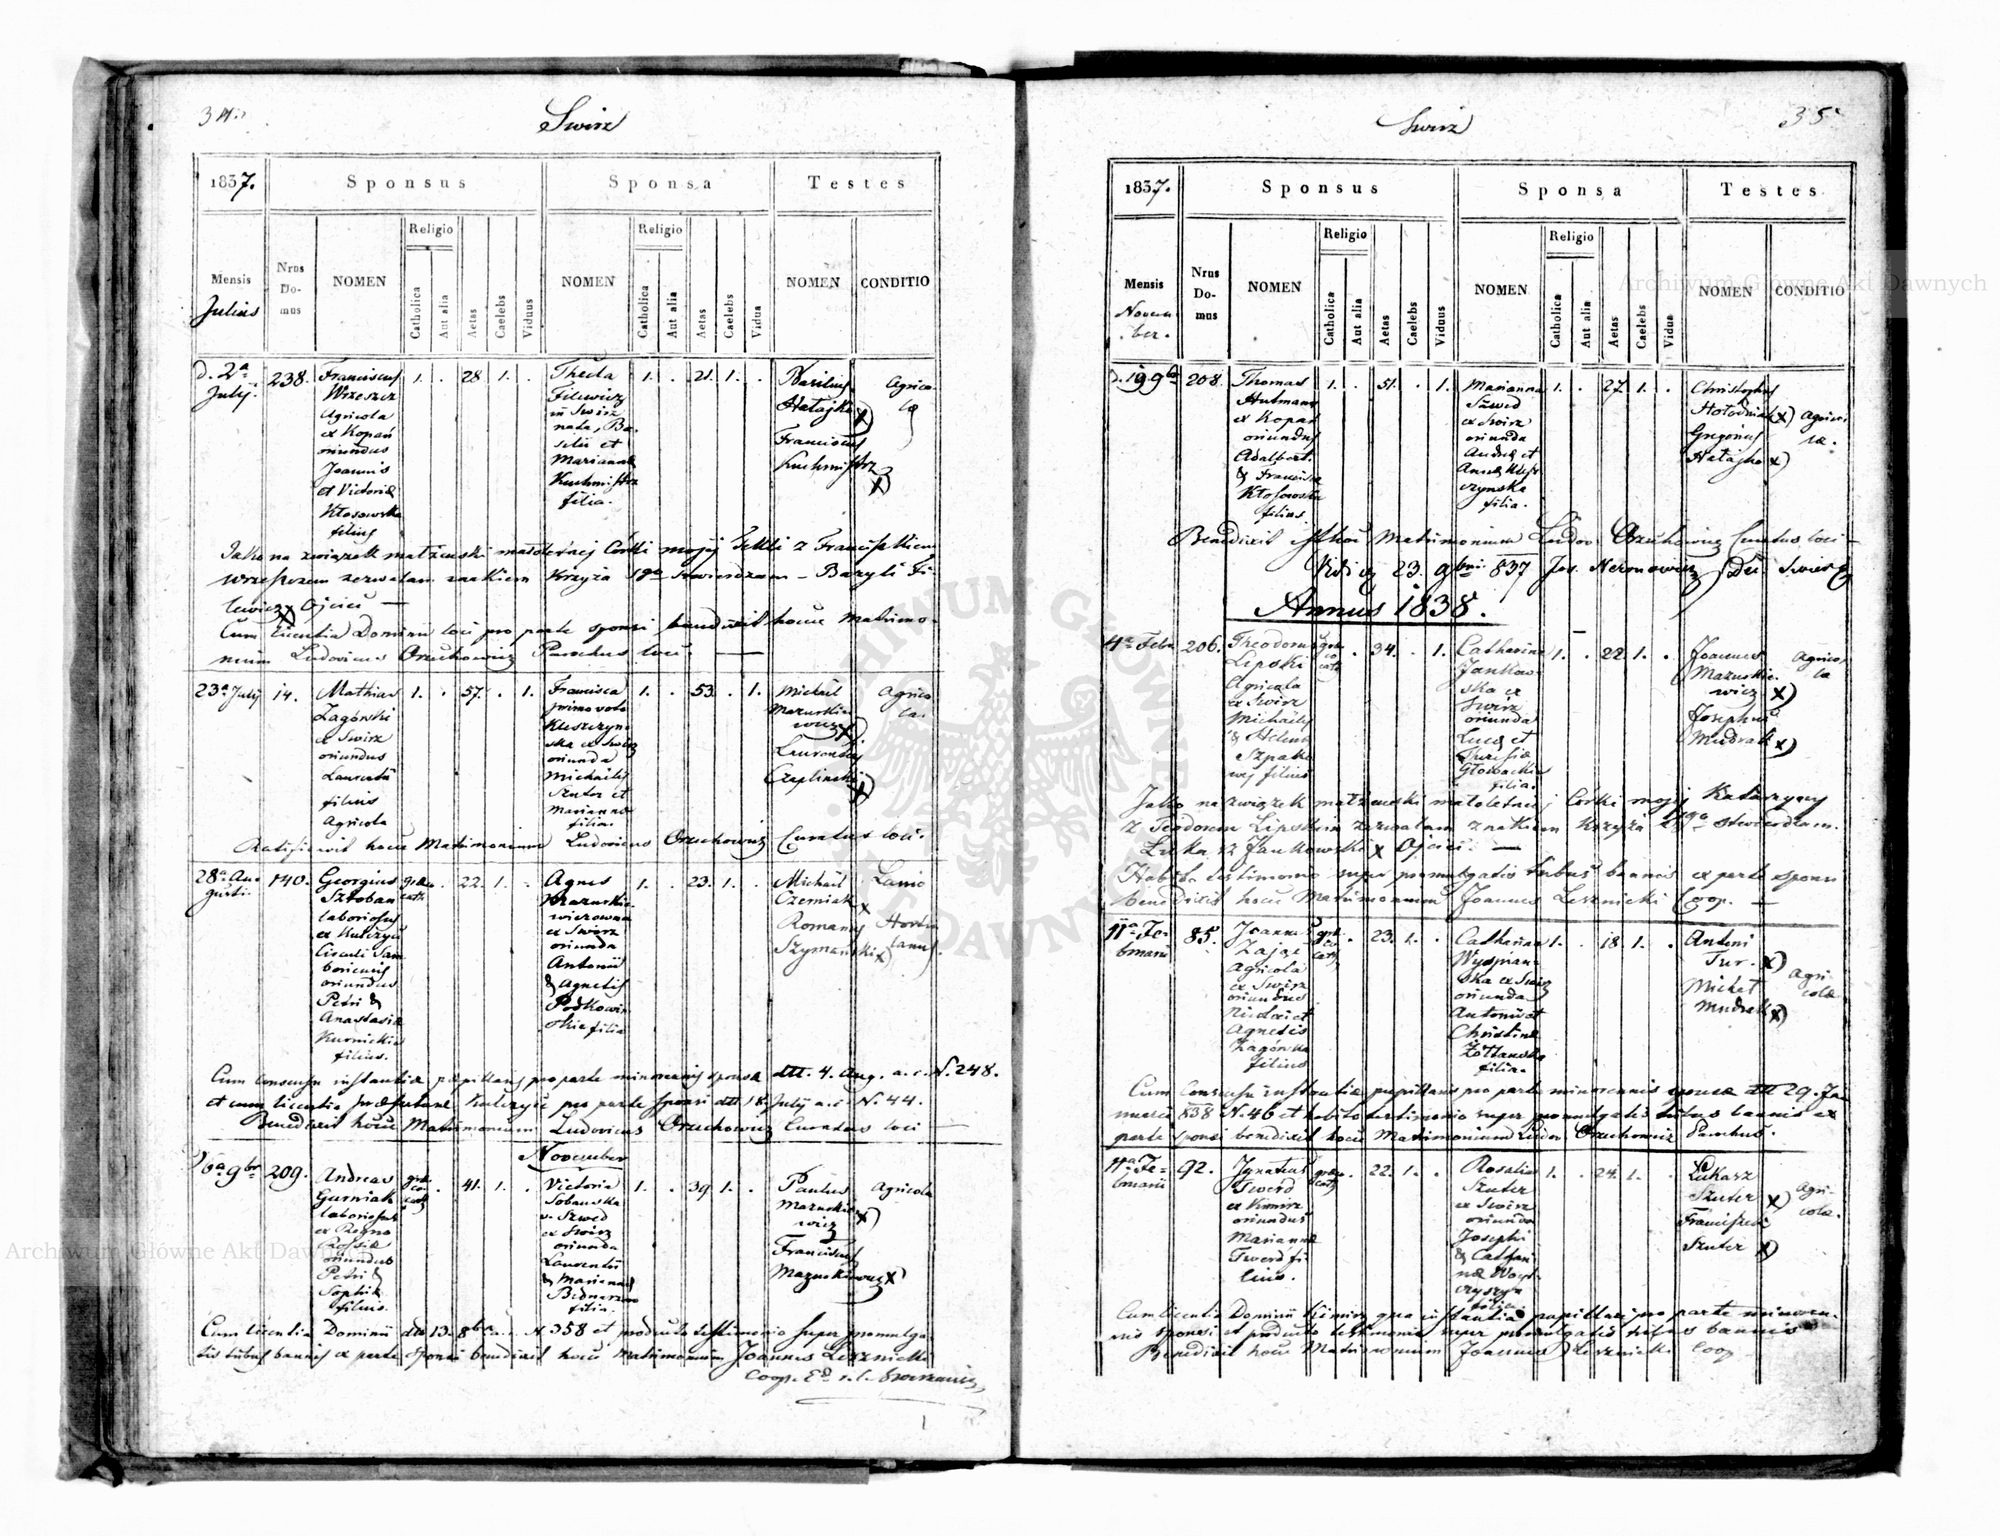 34.
Swirz
1837.
Sponsus
Sponsa
Testes
Mensis
Julius
Nrus Do-mus
NOMEN
Religio
Catholica
Aut alia
Aetas
Caelebs
Viduus
NOMEN
Religio
Catholica
Aut alia
Aetas
Caelebs
Vidua
NOMEN
CONDITIO
d. 2a
July.
238.
Franciscus
Wrzeszcz
Agricola
ex Kopań
oriundus
Joannis
et Victoriæ
Kłosowska
filius
1. . 28 1. .
Thecla
Filewicz
in Swirz
nata, Ba-
silii et
Mariannæ
Kuchmistrz
filia.
1. . 21. 1. .
Basilius
Hatajko x)
Franciscus
Kuchmistrz
x)
Agrico-
læ
Jako na związek małżenski małoletniej Corki mojej Tekli z Franciszkiem
Wrzeszczem zezwalam znakiem Krzyża Sgo stwierdzam – Bazyli Fi-
lewicz x Ojciec —
Cum licentia Dominii loci pro parte sponsi benedixit hocce Matrimo-
nium Ludovicus Orzechowicz Parochus loci. —
23a July
14.
Mathias
Zagórski
ex Swirz
oriundus
Laurentii
filius
Agricola
1. . 57. . 1.
Francisca
primo voto
Kleszczyn-
ska ex Swirz
oriunda
Michaelis
Szuter et
Mariannæ
filia.
1. . 53. . 1.
Michael
Mazurkie-
wicz x)
Laurentius
Czaplinski
x)
Agrico-
læ.
Ratificavit hocce Matrimonium Ludovicus Orzechowicz Curatus loci.
28a Au-
gusti.
140.
Georgius
Sztoban
laboriosus
ex Kulczyce
Circuli Sam-
boriensis
oriundus
Petri &
Anastasiæ
Kurnickie
filius.
græco
cath.
22. 1. .
Agnes
Mazurkie-
wiczowna
ex Swirz
oriunda
Antonii
& Agnetis
Podkowin-
skie filia
1. . 23. 1. .
Michael
Ozemiak x
Romanus
Szymański x)
Lanio
Hortu-
lanus.
Cum consensu instantiæ pupillaris pro parte minorennis sponsæ dtt. 4. Aug. a. c. N. 248.
et cum licentia præfecturæ Kulczyce pro parte sponsi dtt 18. July a. c. N. 44.
Benedixit hocce Matrimonium Ludovicus Orzechowicz Curatus loci —
November
16a 9br
209.
Andreas
Gurniak
laboriosus
ex Regno
Russiæ
oriundus
Petri &
Sophiæ
filius.
græ-
co
cath
. 41. 1. .
Victoria
Sobanska
v. Szwed
ex Swirz
oriunda
Laurentii
& Mariannæ
Bednarzow
filia.
1. . 39 1. .
Paulus
Mazurkie-
wicz x)
Franciscus
Mazurkiewicz x)
Agricola
Cum licentia Dominii dtto 13. 8bris a. c. N. 358 et producto testimonio super promulga-
tis tribus bannis ex parte sponsi benedixit hocce Matrimonium Joannes Lesznicki
Coop.
Swirz
35.
1837.
Sponsus
Sponsa
Testes
Mensis
Novem-
ber.
Nrus Do-mus
NOMEN
Religio
Catholica
Aut alia
Aetas
Caelebs
Viduus
NOMEN
Religio
Catholica
Aut alia
Aetas
Caelebs
Vidua
NOMEN
CONDITIO
d. 19 9b
208.
Thomas
Hutman
ex Kopań
oriundus
Adalberti
& Franciscæ
Kłosowska
filius.
1. . 51. . 1.
Marianna
Szwed
ex Swirz
oriunda
Andreæ et
Annæ Klesz-
czynska
filia.
1. . 27. 1. .
Christophus
Hołodniak x)
Gregorius
Hatajko x)
Agrico-
læ.
Benedixit isthoc Matrimonium Ludov. Orzechowicz Curatus loci –
Vidi 23. 9bris 837 Jos. Neronowicz
Annus 1838.
4a Febr.
206.
Theodorus
Lipski
Agricola
ex Swirz
Michaelis
& Helenæ
Szpako-
wej filius
græ-
co
cath
. 34. . 1.
Catharina
Jankow-
ska ex
Swirz
oriunda
Lucæ et
Theresiæ
Głowacka
filia.
1. . 22. 1. .
Joannes
Mazurkie-
wicz x)
Josephus
Mudrak x)
Agrico-
læ
Jako na związek małżenski małoletniej Corki mojej Katarzyny
z Teodorem Lipskim zezwalam znakiem Krzyża Sgo stwierdzam.
Łukasz Jankowski x Ojciec —
Habito testimonio super promulgatis tribus bannis ex parte sponsi
benedixit hocce Matrimonium Joannes Lesznicki Coop. —
11a Fe-
bruarii
85.
Joannes
Zając
Agricola
ex Swirz
oriundus
et
Agnetis
Zagórska
filius
græ-
co
cath
. 23. 1. .
Catharina
Wyspian-
ska ex Swirz
oriunda
Antonii et
Christinæ
Żółtanska
filia.
1. . 18. 1. .
Antoni
Tur. x)
Michał
Mudrak x)
Agri-
colæ
Cum Consensu instantiæ pupillaris pro parte minorennis sponsæ dtt 29. Ja-
nuarii 838 N. 46 et habito testimonio super promulgatis tribus bannis ex
parte sponsi benedixit hocce Matrimonium Ludov. Orzechowicz Parochus.
11a Fe-
bruarii
92.
Ignatius
Twerd
ex Kimirz
oriundus
Mariannæ
Twerd fi-
lius.
græco
cath
. 22. 1. .
Rosalia
Szuter
ex Swirz
oriunda
Josephi
& Cathari-
næ
filia.
1. . 24. 1. .
Łukasz
Szuter x)
Franciszek
Szuter x)
Agri-
colæ.
Cum licentia Dominii Kimirz qua instantia pupillari pro parte minoren-
nis sponsi et producto testimonio super promulgatis tribus bannis
Benedixit hocce Matrimonium Joannes Lesznicki Coop
Archiwum Główne Akt Dawnych
Archiwum Główne Akt Dawnych
ARCHIWUM GŁÓWNE AKT DAWNYCH